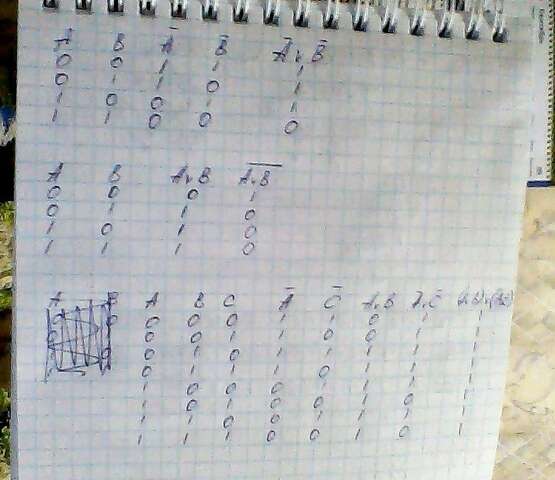 A B Ā B̄ Ā v B̄
0 0 1 1 1
0 1 1 0 1
1 0 0 1 1
1 1 0 0 0
A B A v B A̅ ̅v̅ ̅B̅
0 0 0 1
0 1 1 0
1 0 1 0
1 1 1 0
A B A B C Ā C̄ A v B Ā v C̄
0 0 0 1 1 0 1 1
0 0 1 1 0 0 1 1
0 1 0 1 1 1 1 1
0 1 1 1 0 1 1 1
1 0 0 0 1 1 1 1
1 0 1 0 0 1 0 1
1 1 0 0 1 1 1 1
1 1 1 0 0 1 0 1